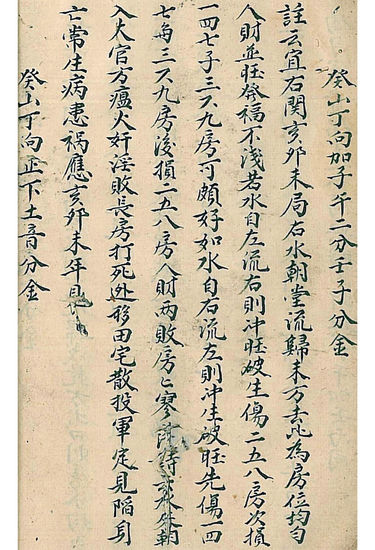 癸山丁向加子午二分壬子分金
註云宜右関亥卯未局右水朝堂流歸未方去
為房位均匀
人財並旺發福不淺若水自左流右則冲旺破生傷二五八房次損
一四七子三六九房可頗好如水自右流左則冲生破旺先傷一四
七与三六九房後損二五八房人財两敗房々寥
水朝
入犬官方瘟火奸淫敗長房打死外移田宅散投軍定見陷身
亡常生病患禍應亥卯未年見
癸山丁向正下土音分金